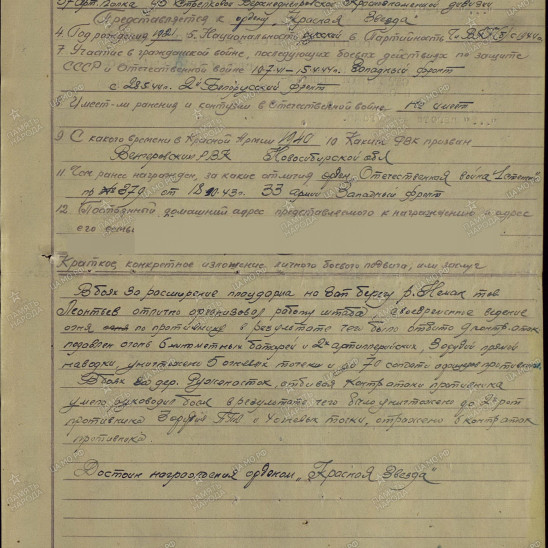 Арт. Полка 49 Стрелковой Верхнеднепровской Краснознаменной дивизии
Представляется к ордену "Красная Звезда"
4. Год рождения 1921 5. Национальность русский 6. Партийность
7. Участие в гражданской войне, последующих боевых действиях по защите
СССР и Отечественной войне 10.7.41-15.4.44г. Западный фронт
с 28.5.44г. 2й Белорусский фронт
8 Имеет-ли ранения и контузии в Отечественной войне Не имеет
9 С какого времени в Красной Армии 1940 10 Каким РВК призван
Венгеровским РВК Новосибирской обл
11 Чем ранее награжден, за какие отличия орден "Отечественная война 1 степени"
пр № 870 от 18 43г. 33 армии Западный фронт
12 Постоянный домашний адрес представляемого к награждению и адрес
его семьи
Краткое, конкретное изложение личного боевого подвига, или заслуг
В боях за расширение плацдарма на зап берегу р. Неман тов
Леонтьев отлично организовал работу штаба, своевременное ведение
огня по противнику в результате чего было отбито контратак
подавлен огонь 6 минометных батарей и 2х артиллерийских, 3 орудий прямой
наводки, уничтожено 5 огневых точек и до 70 солдат противника.
В боях за дер. отбивая контратаки противника
умело руководил боем в результате чего было уничтожено до 2х рот
противника 3 орудия ПТО и 4 огневых точки, отражено 8 контратак
противника
Достоин награждения орденом "Красная Звезда"